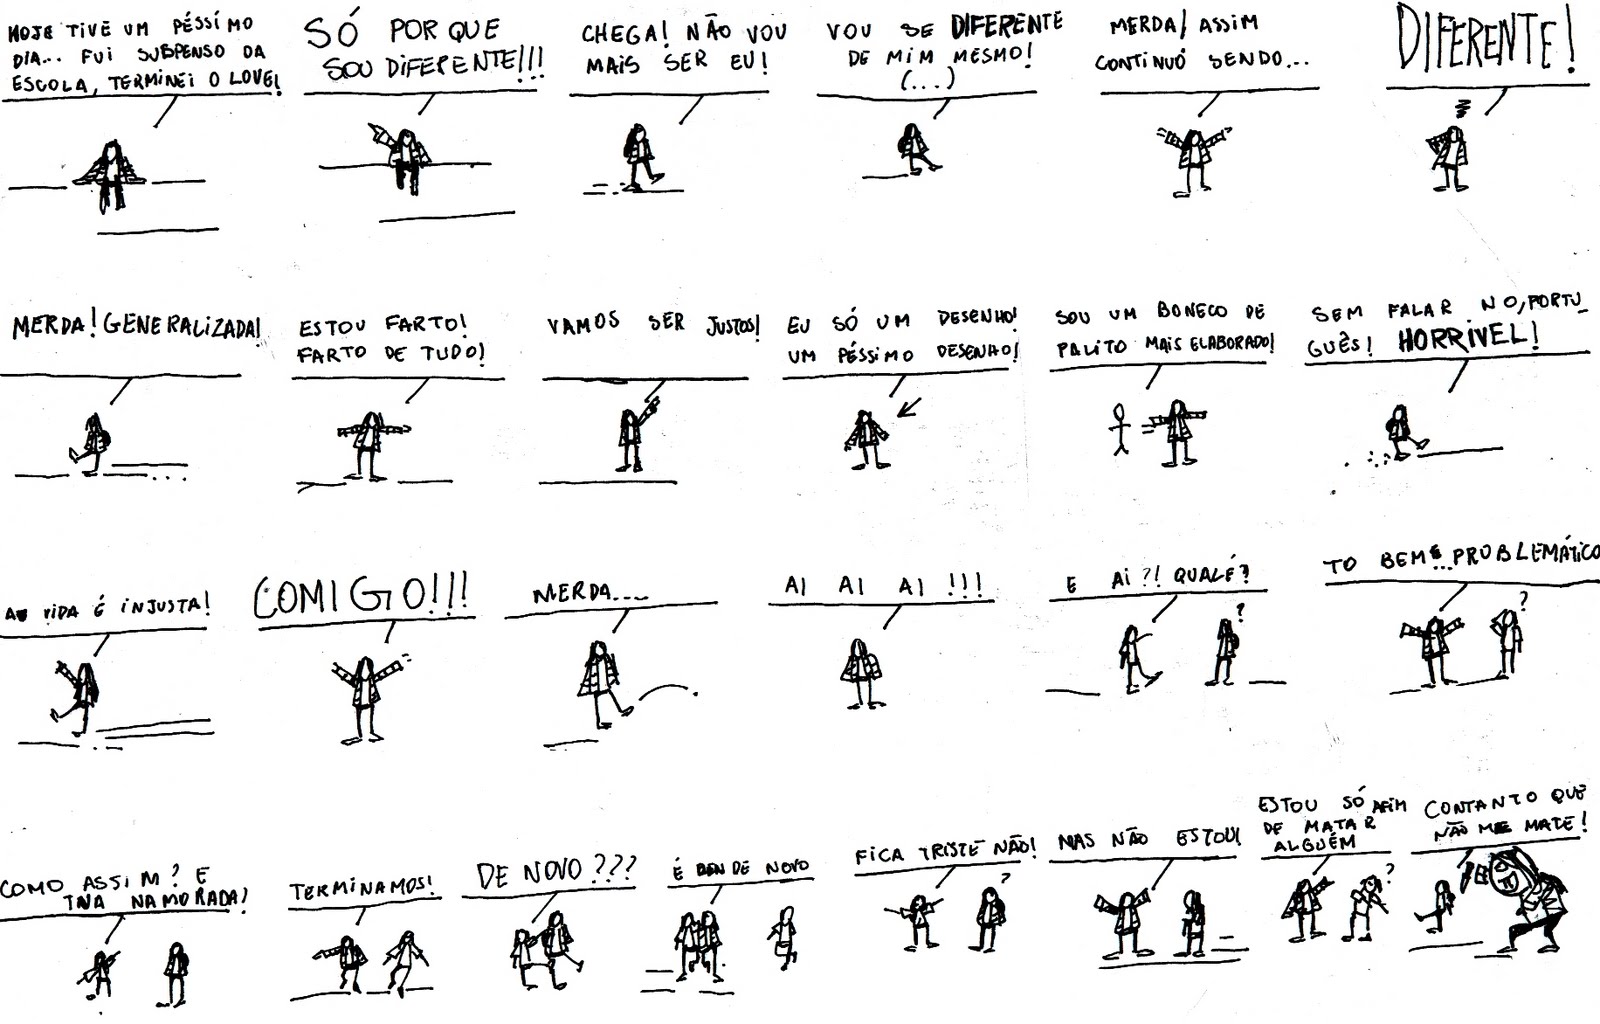 HOJE TIVE UM PÉSSÍMO
DIA... FUI SUSPENSO DA
ESCOLA, TERMINEI O LOVE!
SÓ POR QUE
SOU DIFERENTE!!!
CHEGA! NÃO VOU
MAIS SER EU!
VOU SE DIFERENTE
DE MIM MESMO!
(...)
MERDA! ASSIM
CONTINUÓ SENDO...
DIFERENTE!
MERDA! GENERALIZADA!
ESTOU FARTO!
FARTO DE TUDO!
VAMOS SER JUSTOS!
EU SÓ UM DESENHO!
UM PÉSSIMO DESENHO!
SOU UM BONECO DE
PALITO MAIS ELABORADO!
SEM FALAR NO, PORTU_
GUÊS! HORRÍVEL!
A VIDA É INJUSTA!
COMIGO!!!
MERDA....
AI AI AI !!!
E AÍ ?! QUALÉ?
?
TO BEM... PROBLEMÁTICO
?
COMO ASSIM? E
TUA NAMORADA!
TERMINAMOS!
DE NOVO ???
É DE NOVO
FICA TRISTE NÃO!
?
MAS NÃO ESTOU!
ESTOU SÓ AFIM
DE MATAR
ALGUÉM
?
CONTANTO QUE
NÃO ME MATE!